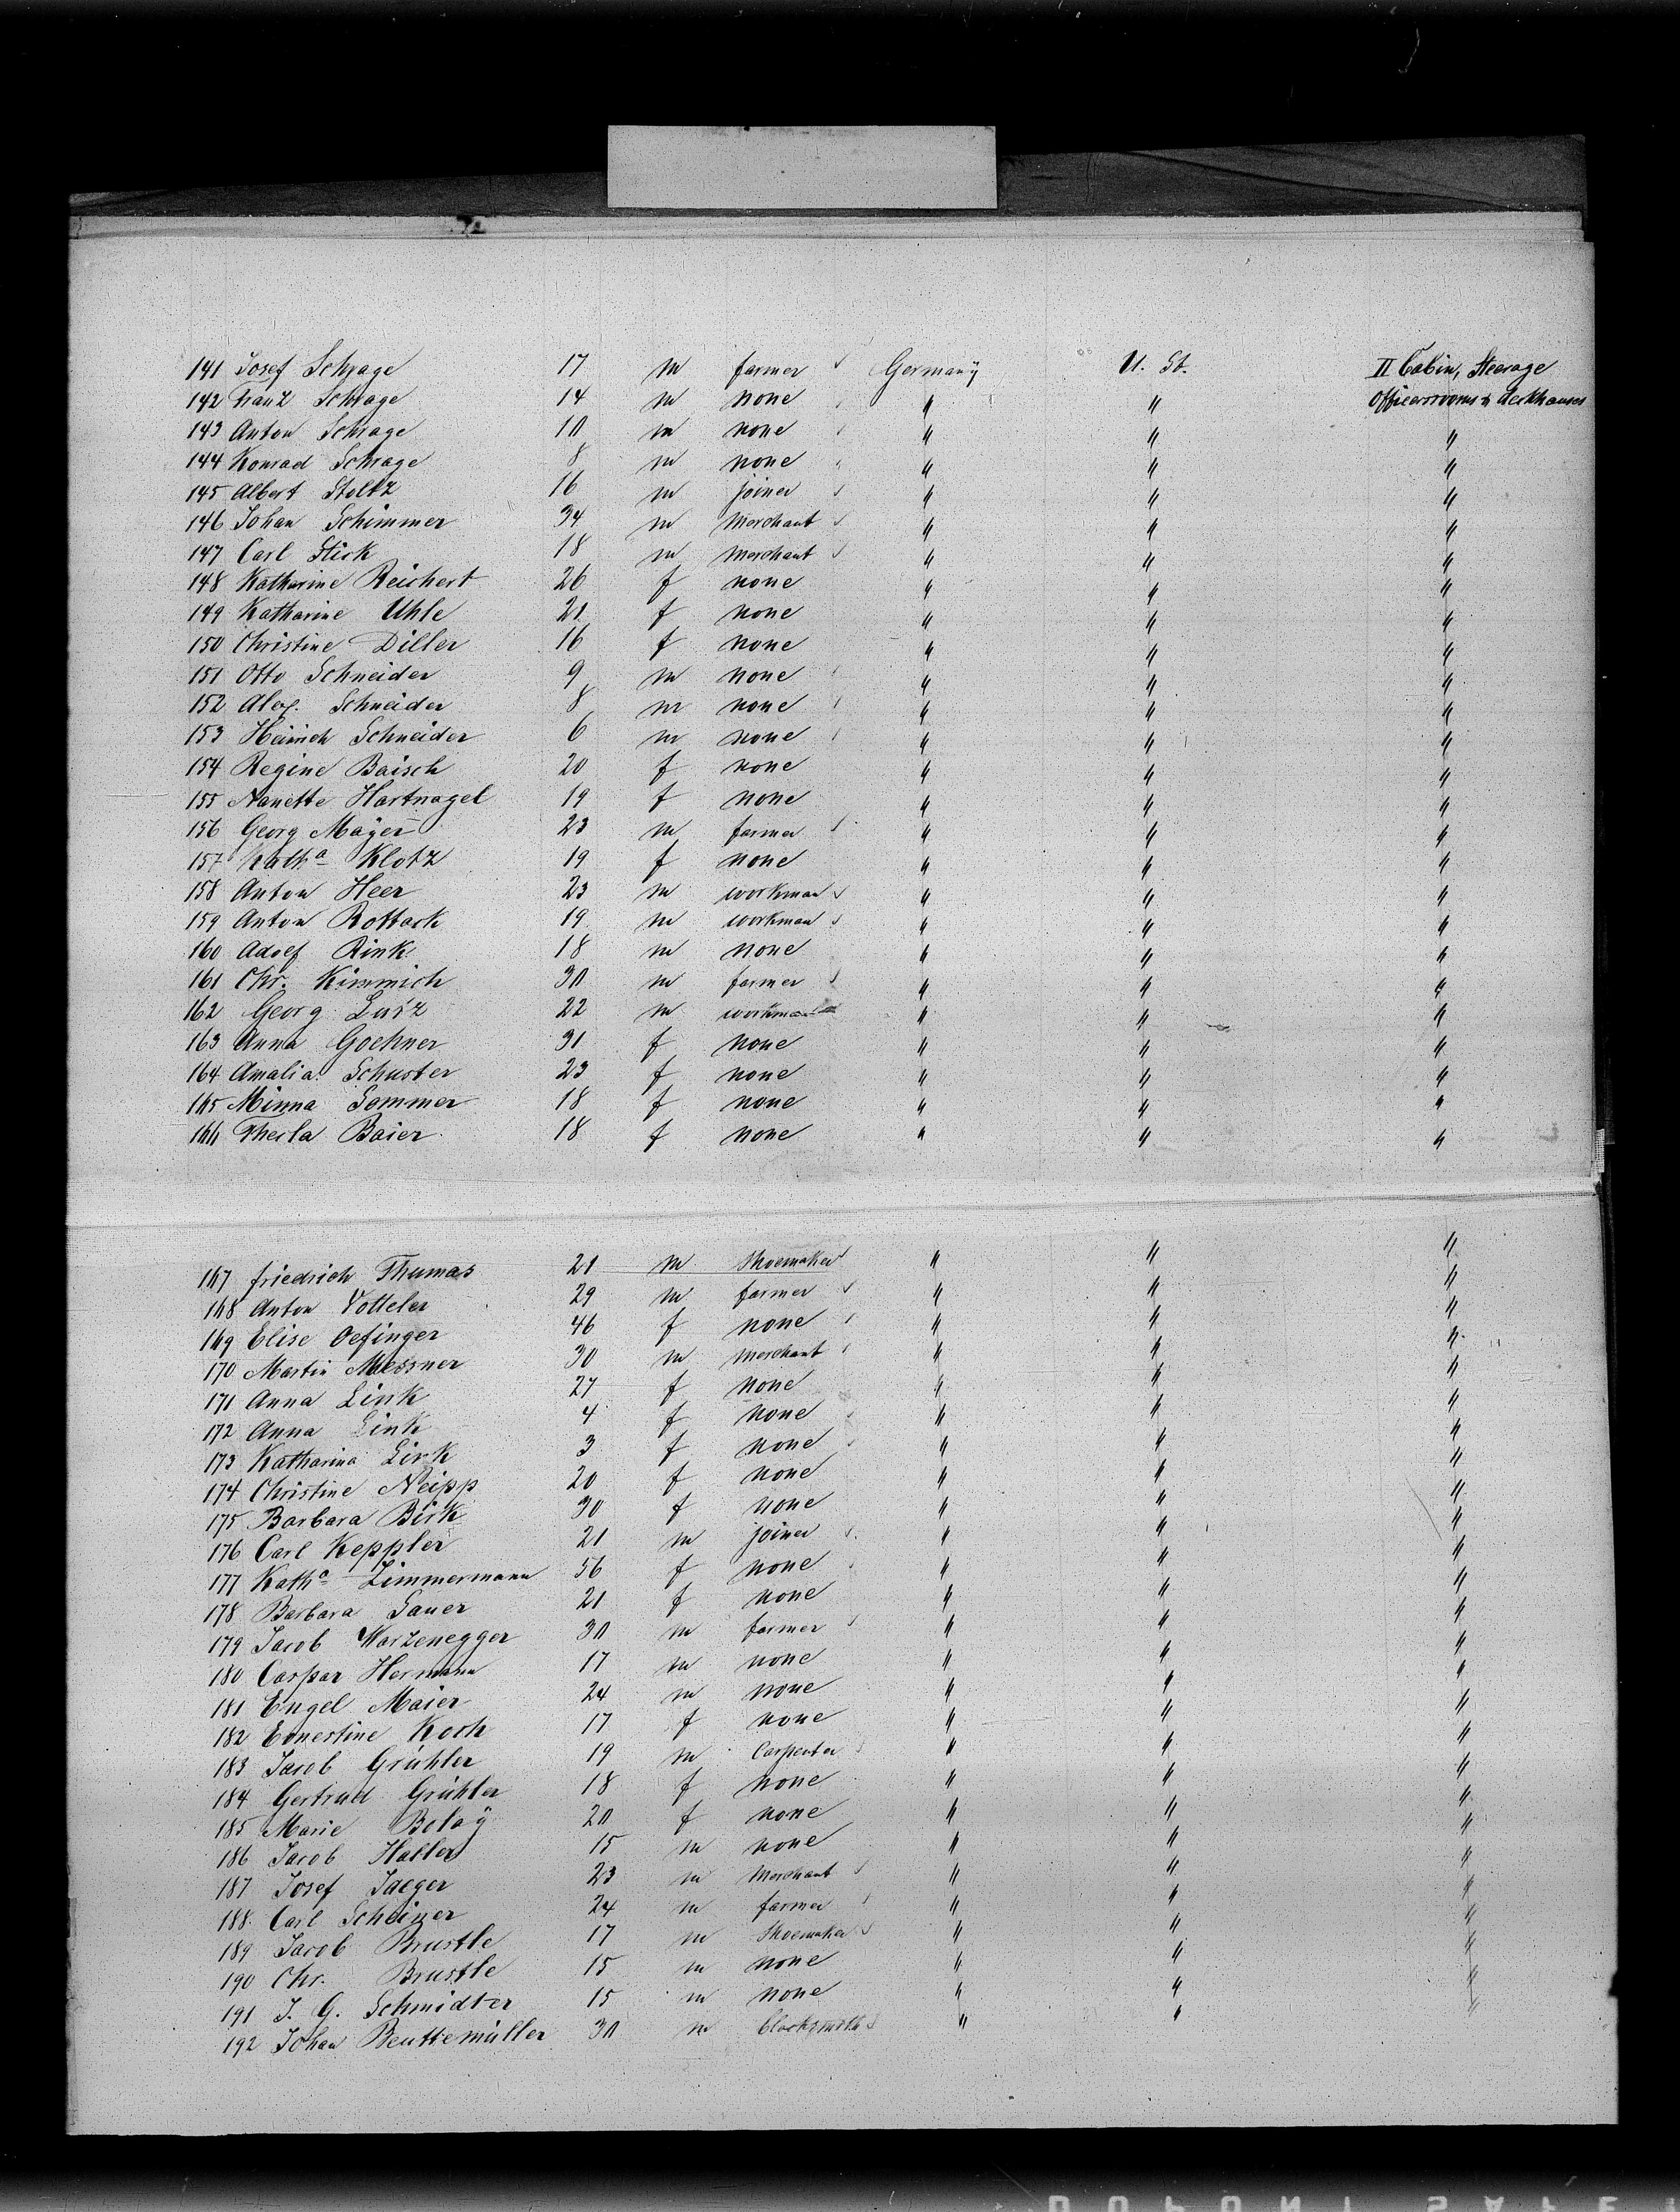 141 Josef Schrage 17 m farmer Germany U. St. II Cabin, Stearage
142 Franz Schrage 14 m none " " Officersrooms & deckhouses
143 Anton Schrage 10 m none " " "
144 Konrad Schrage 8 m none " " "
145 Albert Stoltz 16 m joiner " " "
146 Johan Schimmer 34 m merchant " " "
147 Carl Flick 18 m merchant " " "
148 Katharine Reichert 26 f none " " "
149 Katharine Uhle 21 f none " " "
150 Christine Diller 16 f none " " "
151 Otto Schneider 9 m none " " "
152 Alex. Schneider 8 m none " " "
153 Heinrich Schneider 6 m none " " "
154 Regine Baisch 20 f none " " "
155 Nanette Hartnagel 19 f none " " "
156 Georg Mayer 23 m farmer " " "
157 Katha Klotz 19 f none " " "
158 Anton Heer 23 m workman " " "
159 Anton Rottack 19 m workman " " "
160 Adolf Rink 18 m none " " "
161 Chr. Kimmich 30 m farmer " " "
162 Georg Lutz 22 m workman " " "
163 Anna Gochner 31 f none " " "
164 Amalia Schuster 23 f none " " "
165 Minna Sommer 18 f none " " "
166 Thecla Baier 18 f none " " "
167 Friedrich Thumas 21 m Shoemaker " " "
168 Anton Votteler 29 m farmer " " "
169 Elise Oefinger 46 f none " " "
170 Martin Messner 30 m merchant " " "
171 Anna Link 27 f none " " "
172 Anna Link 4 f none " " "
173 Katharina Link 3 f none " " "
174 Christine Neipp 20 f none " " "
175 Barbara Birk 30 f none " " "
176 Carl Keppler 21 m joiner " " "
177 Katha Zimmermann 56 f none " " "
178 Barbara Sauer 21 f none " " "
179 Jacob Warzenegger 30 m farmer " " "
180 Caspar Hermann 17 m none " " "
181 Engel Maier 24 m none " " "
182 Ernestine Koch 17 f none " " "
183 Jacob Grühler 19 m Carpenter " " "
184 Gertrud Grühler 18 f none " " "
185 Marie Belay 20 f none " " "
186 Jacob Haller 15 m none " " "
187 Josef Jaeger 23 m Merchant " " "
188 Carl Scheizer 24 m farmer " " "
189 Jacob Brustle 17 m Shoemaker " " "
190 Chr. Brustle 15 m none " " "
191 J. G. Schmidter 15 m none " " "
192 Johan Beuttemüller 30 m blacksmith " "